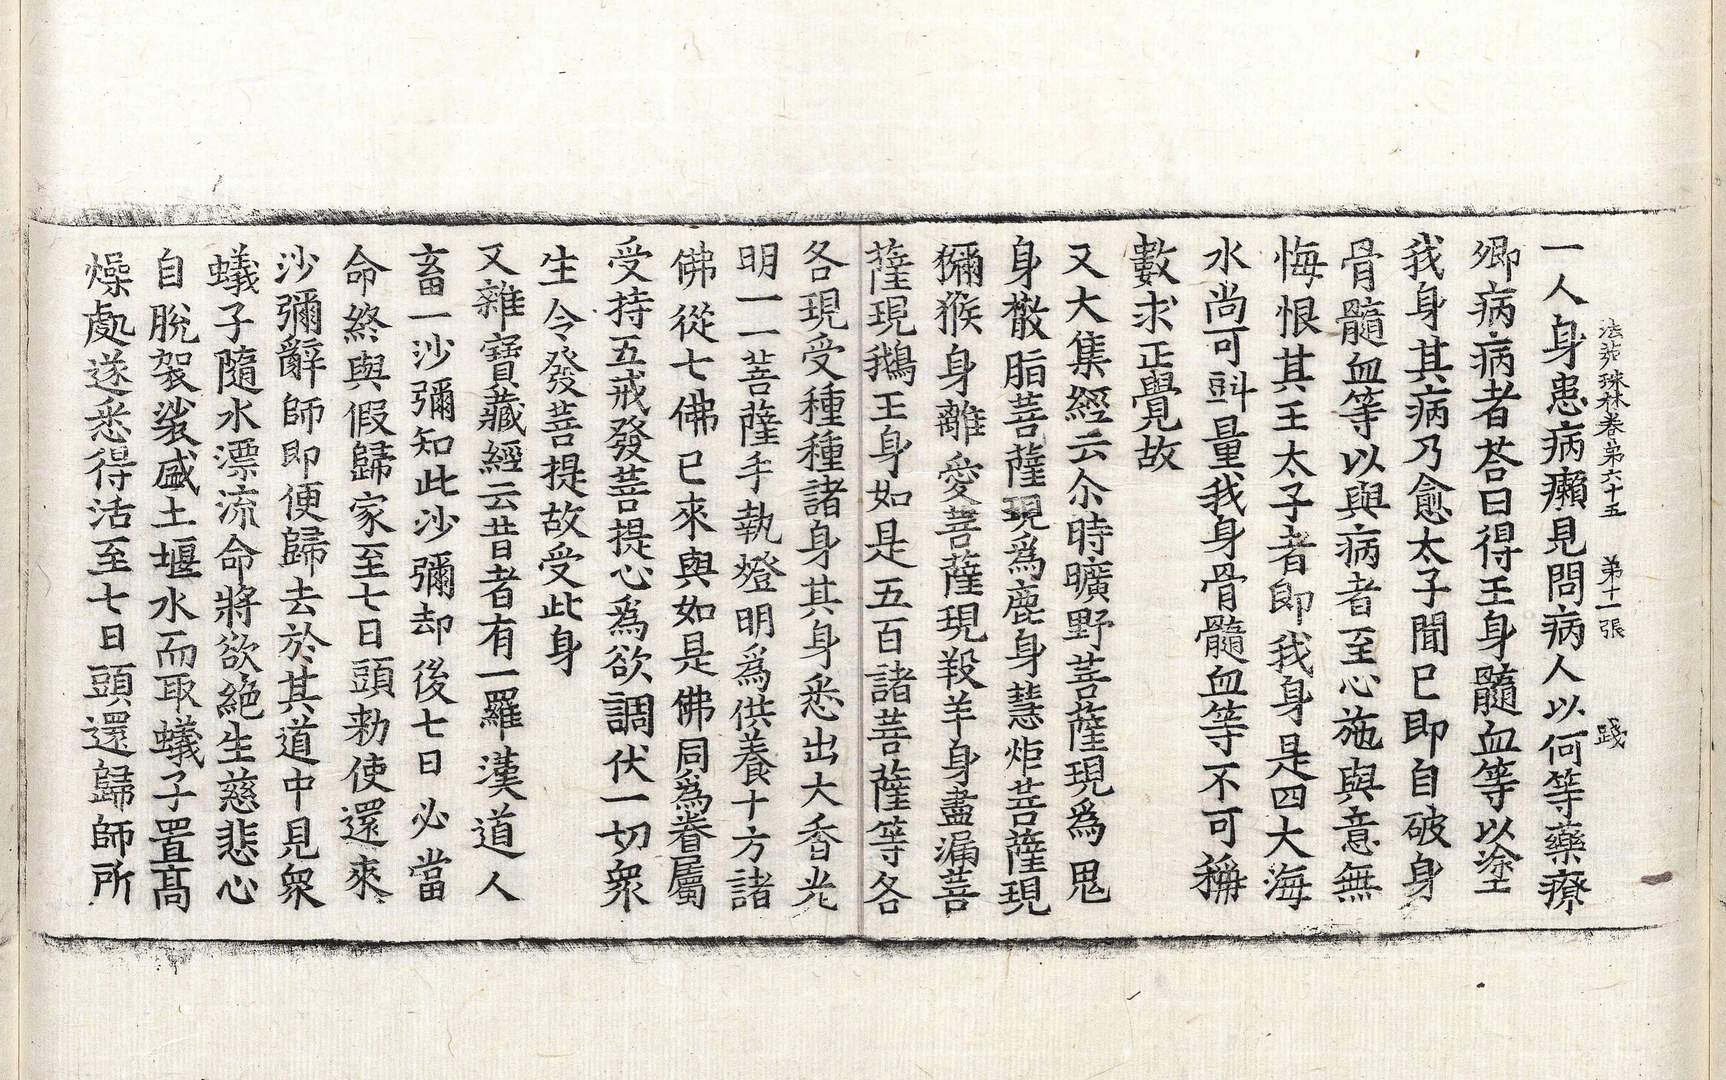 法苑珠林卷第六十五　第十一張　踐
一人身患病癩見問病人以何等藥療
卿病病者荅曰得王身髓血等以塗
我身其病乃愈太子聞已即自破身
骨髓血等以與病者至心施與意無
悔恨其王太子者即我身是四大海
水尚可㪷量我身骨髓血等不可稱
數求正覺故
又大集經云尒時曠野菩薩現爲鬼
身散脂菩薩現爲鹿身慧炬菩薩現
獼猴身離愛菩薩現羖羊身盡漏菩
薩現鵝王身如是五百諸菩薩等各
各現受種種諸身其身悉出大香光
明一一菩薩手執燈明爲供養十方諸
佛從七佛已來與如是佛同爲眷屬
受持五戒發菩提心爲欲調伏一切衆
生令發菩提故受此身
又雜寶藏經云昔者有一羅漢道人
畜一沙彌知此沙彌却後七日必當
命終與假歸家至七日頭勑使還來
沙彌辭師即便歸去於其道中見衆
蟻子隨水漂流命將欲絶生慈悲心
自脫袈裟盛土堰水而取蟻子置高
燥處遂悉得活至七日頭還歸師所